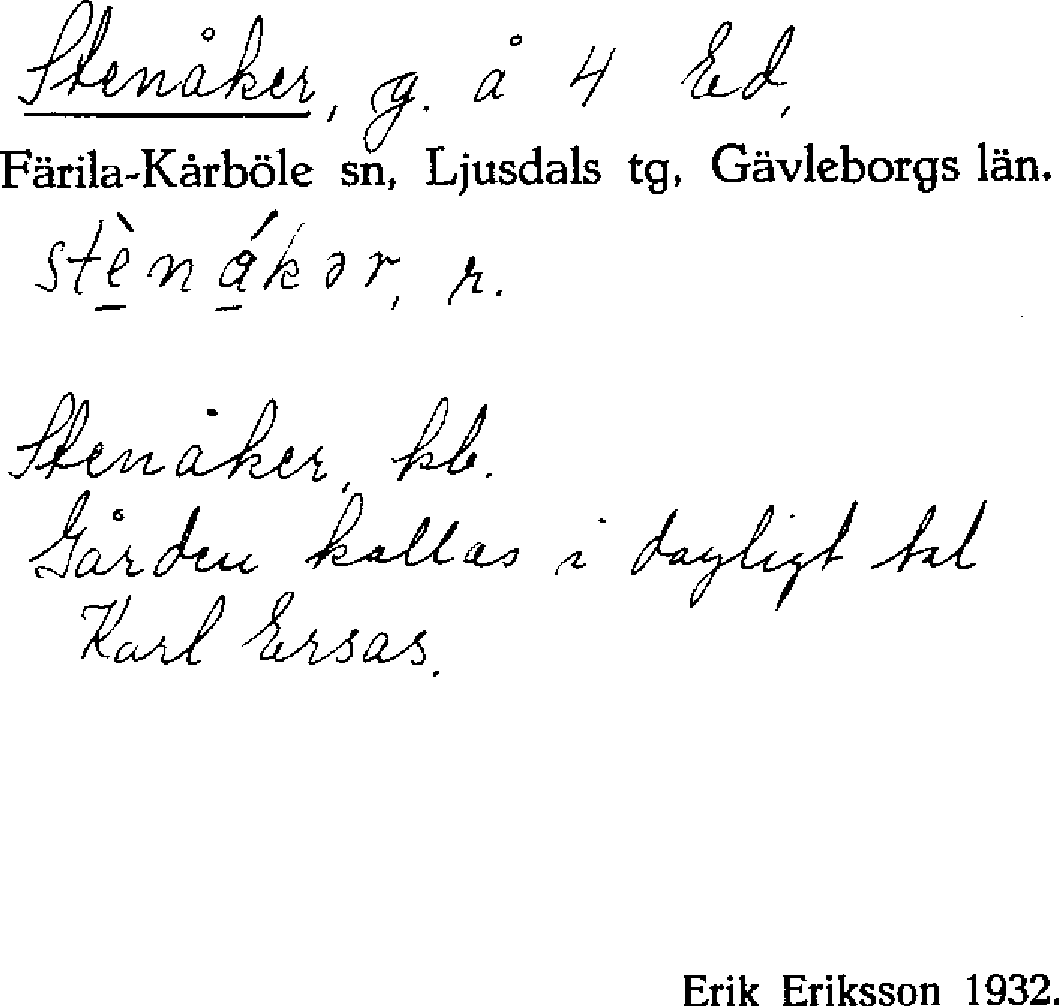 Stenåker, g. å 4 Ed,
Färila-Kårböle sn, Ljusdals tg, Gävleborgs län.
stè̱ná̱kər, r.
Stenåker, kb.
Gården kallas i dagligt tal
Karl Ersas.
Erik Eriksson 1932.